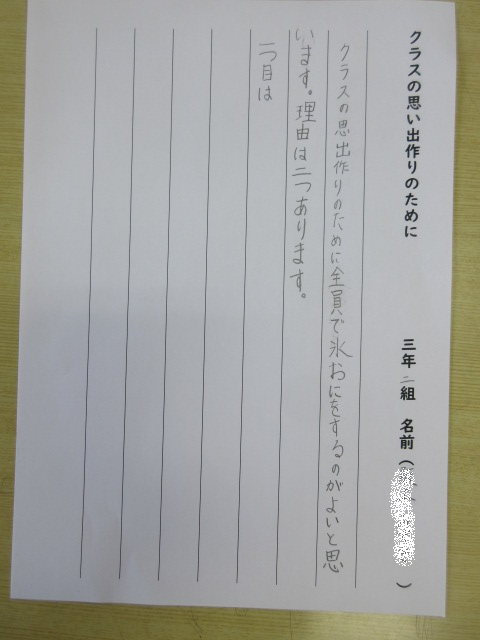 クラスの思い出作りのために　三年二組　名前（　）
クラスの思出作りのために全員で氷おにをするのがよいと思
います。理由は二つあります。
一つ目は